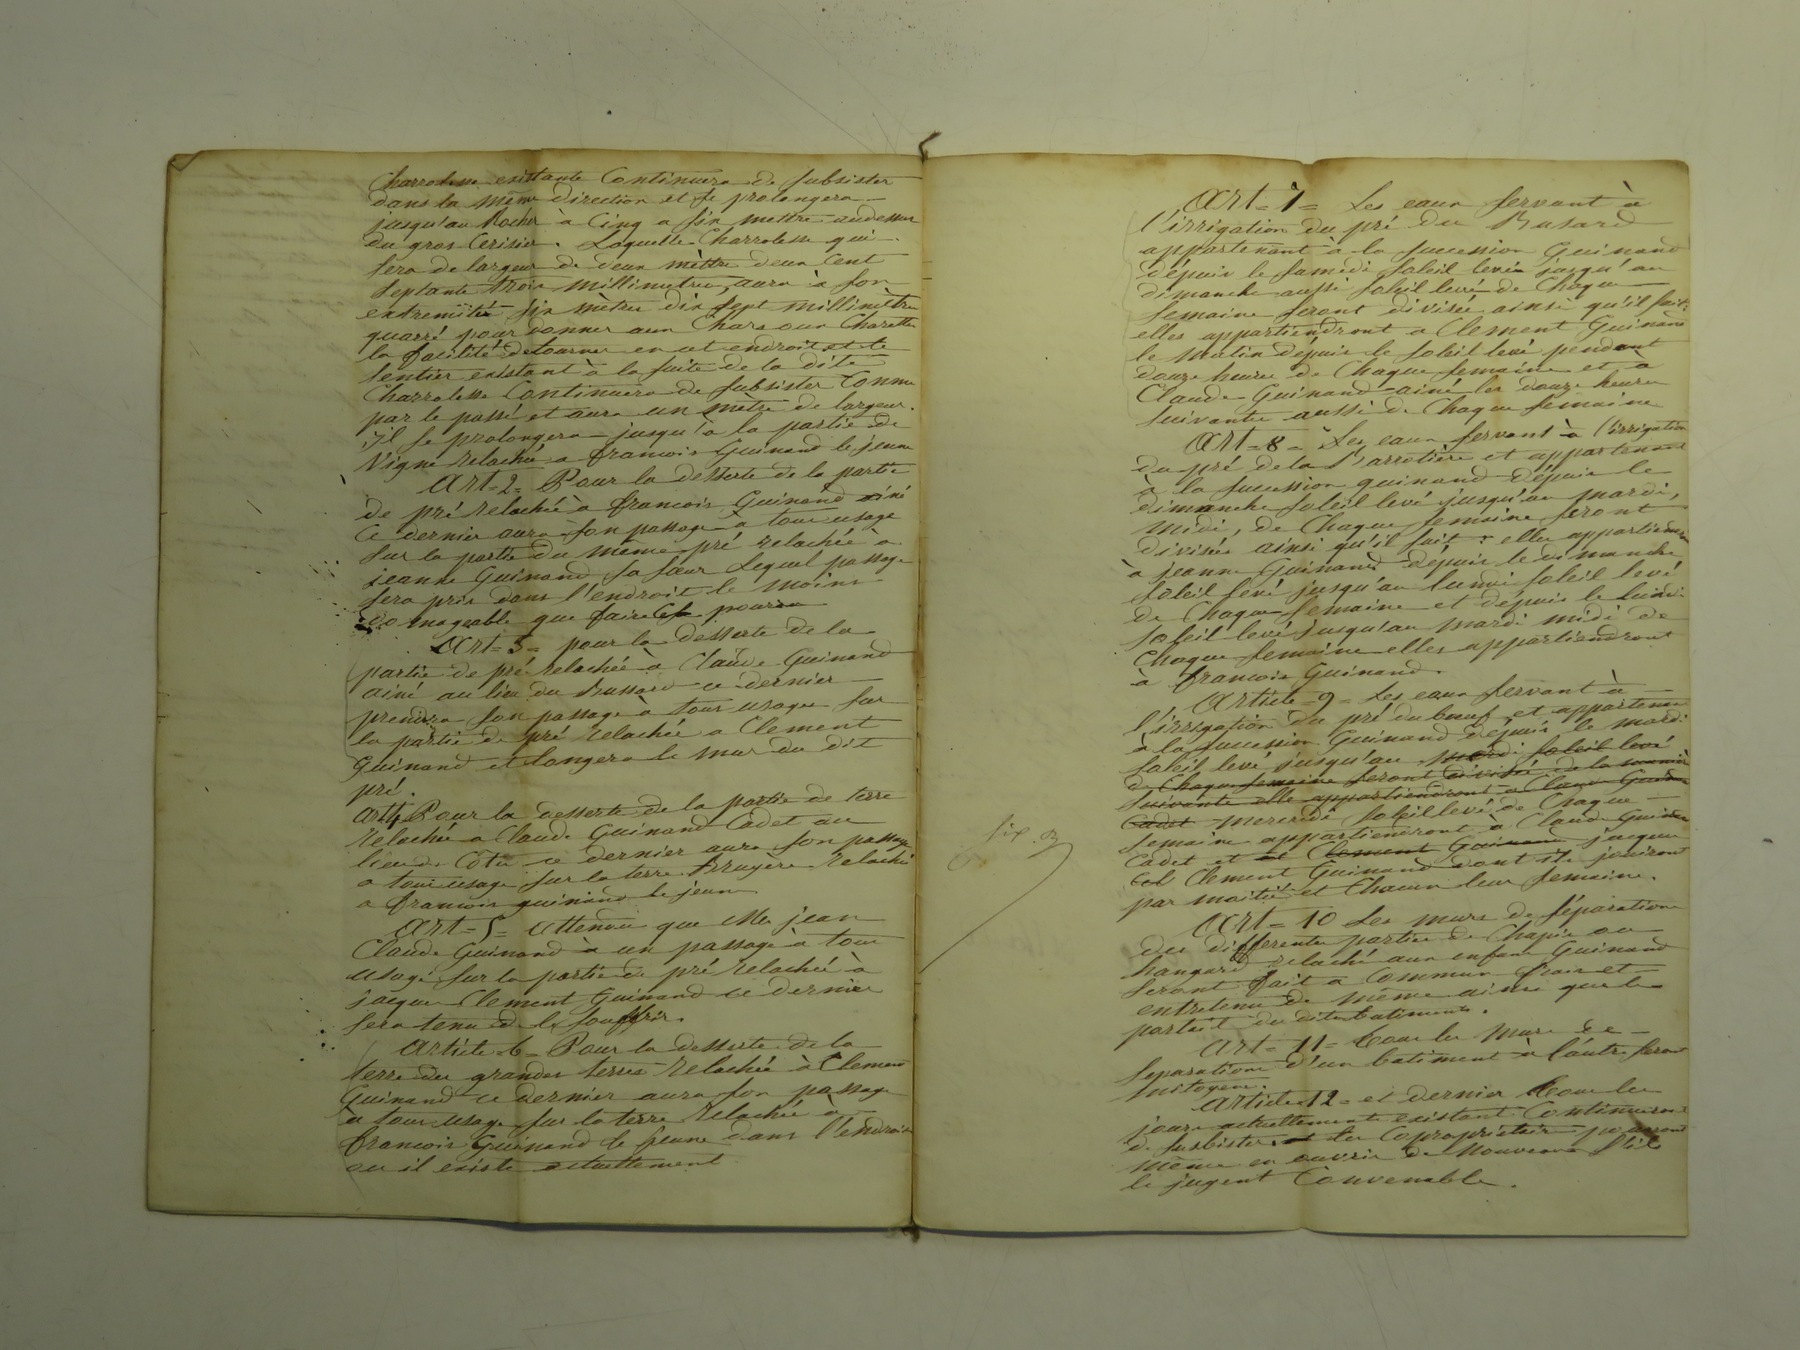 Charrolesse existante Continuera de subsister
dans la même direction et se prolongera
jusqu'au Rocher à Cinq a six mettre audessus
du gros Cerisier. Laquelle Charrolesse qui
sera de largeur de deux mèttre deux Cent
septante trois millimetres, aura à son
extremitée six mètres dix sept millimètre
quarré pour donner aux Chars oux Charettes
la facilité detourner en cet endroit et le
sentier existant à la suite de la dite
Charrolesse Continuera de subsister Comme
par le passé et aura un mètre de largeur.
il se prolongera jusqu'a la partie de
Vigne relachée a francois Guinand le jeune
Art=2= Pour la desserte de la partie
de pré relachée à francois Guinand ainé
Ce dernier aura son passage à tout usage
sur la partie du même pré relachée à
jeanne Guinand sa sœur Lequel passage
sera pris dans l'endroit le moins
domageable que faire Ce poura
Art=3= pour la desserte de la
partie de pré relachée à Claude Guinand
ainé au lieu du Bussard ce dernier
prendra son passage à tous usages sur
la partie de pré relachée a Clement
Guinand et longera le mur du dit
pré.
Art 4 Pour la desserte de la partie de terre
relachée a Claude Guinand Cadet au
lieu de Côte ce dernier aura son passage
a tous usage sur la terre Bruyère relachée
a francois guinand le jeune
Art=5= Attendu que Me jean
Claude Guinand à un passage à tous
usage sur la partie de pré relachée à
jacque Clement Guinand ce dernier
sera tenu de le souffrir.
Article=6= Pour la desserte de la
terre des grandes terres relachée à Clement
Guinand ce dernier aura son passage
à tous usage sur la terre relachée à
francois Guinand le jeune dans l'endroit
ou il existe actuellement
six. 3
Art=7= Les eaux servant à
l'irrigation du pré du Busard
appartenant à la succession Guinand
dépuis le samedi soleil levée jusqu'au
dimanche aussi soleil levé de Chaque
semaine seront divisée ainsi qu'il suit:
elles appartiendront a Clement Guinand
le matin dépuis le soleil levé pendant
douze heures de Chaque semaine et à
Claude Guinand ainé les douze heures
suivantes aussi de Chaque semaine
Art=8= Les eaux servant à l'irrigation
du pré dela et appartenant
à la succession guinand dépuis le
dimanche soleil levé jusqu'au mardi,
midi, de Chaque semaine seront
divisées ainsi qu'il suit: elles appartiendront
à jeanne Guinand dépuis le dimanche
soleil levé jusqu'au lundi soleil levé
de Chaque semaine et dépuis le lundi
soleil levé jusqu'au mardi midi de
Chaque semaine elles appartiendront
à francois Guinand.
Article=9= Les eaux servant à
l'irrigation du pré du bœuf et appartenant
à la succession Guinand dépuis le mardi
soleil levé jusqu'au soleil levé
de Chaque semaine seront divisée de la manière
suivante elle appartiendront a Claude Guinand
Cadet mercredi soleil levé de Chaque
semaine appartiendront à Claude Guinand
Cadet et Clement Guinand jacque
Clement Guinand dont ils jouiront
par moitié et Chacun leur semaine.
Art=10 Les murs de séparation
des differente partie de Chapie ou
hangard relaché aux enfans Guinand
seront fait a Commun frais et
entretenu de même ainsi que le
portail du dit batiments.
Art=11= Tous les murs de
separations d'un batiment à l'autre seront
mitoyens.
Article 12= et dernier Tous les
jours actuellement existant Continueront
de subsister et les Copropriétaires pouront
même en ouvrir de Nouveaux s'ils
le jugent Convenable.